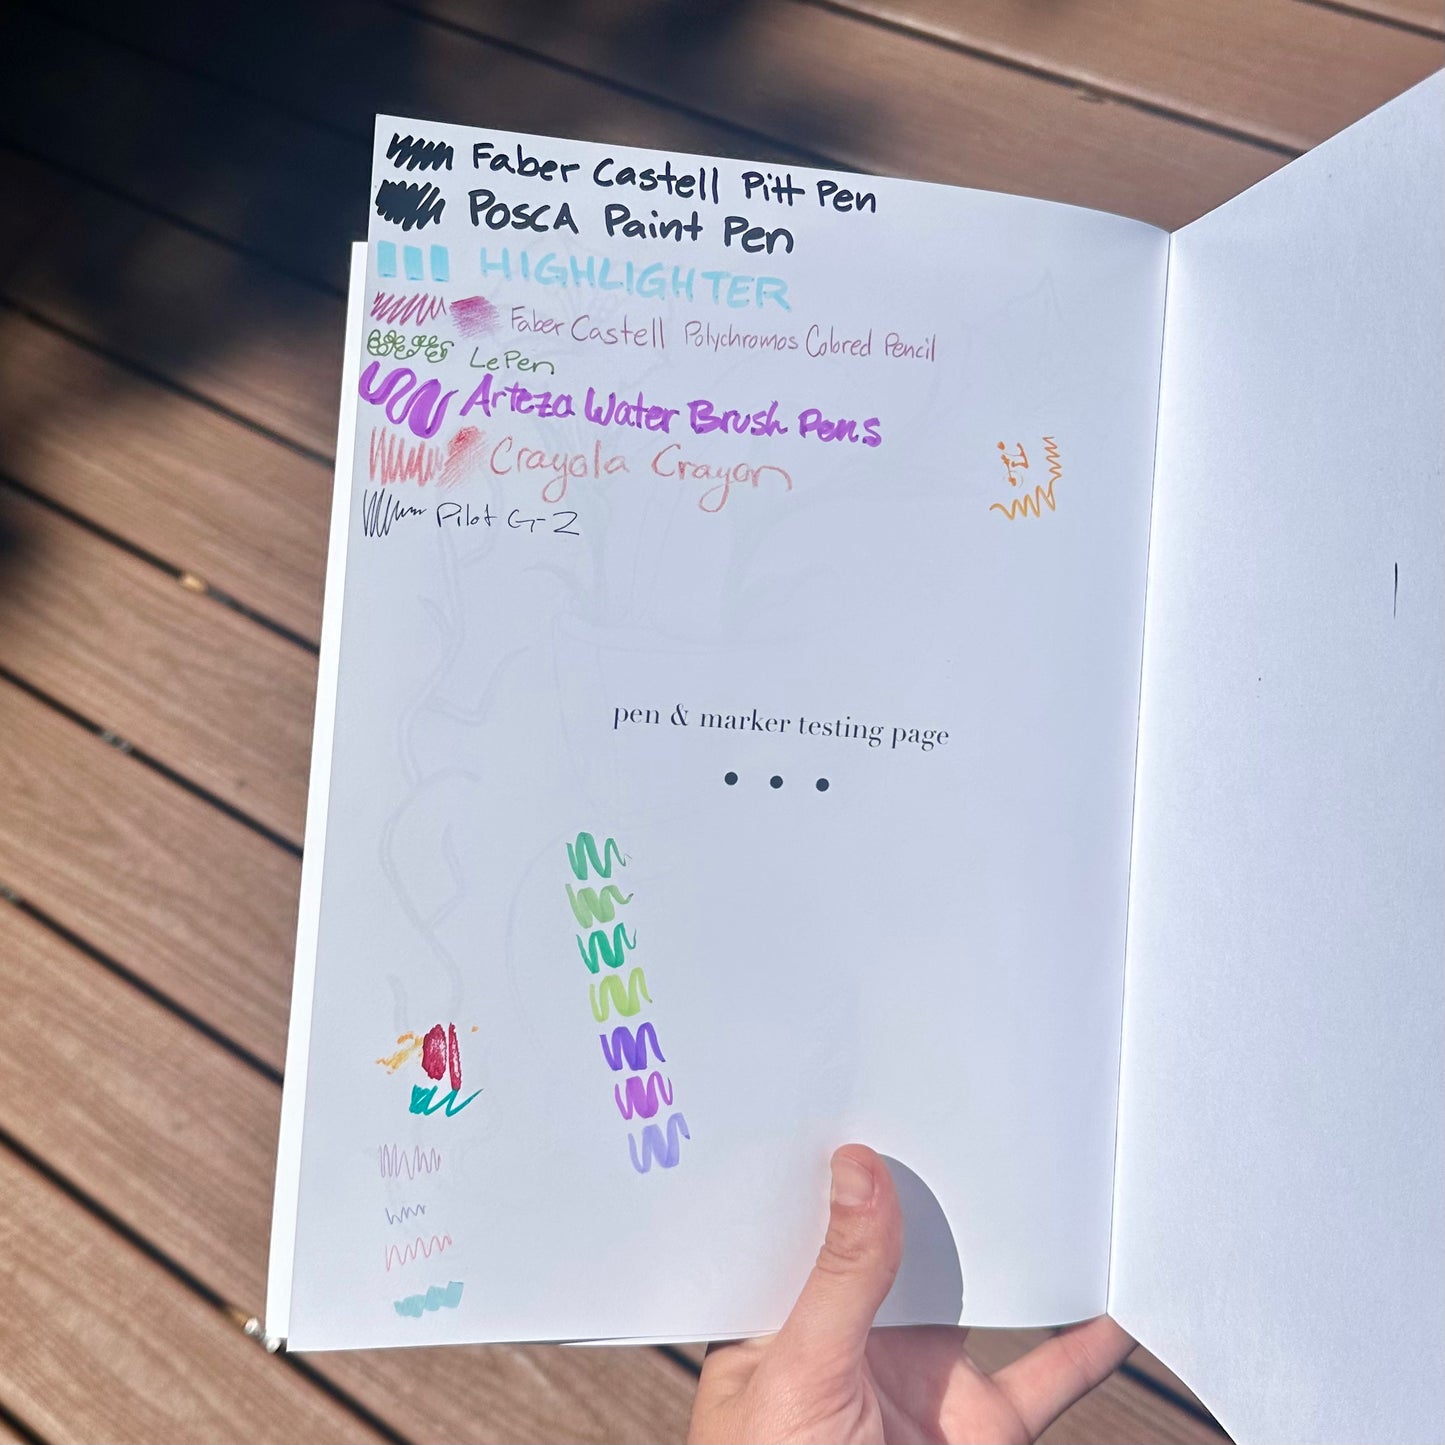 Faber Castell Pitt Pen
POSCA Paint Pen
HIGHLIGHTER
Faber Castell Polychromos Colored Pencil
LePen
Arteza Water Brush Pens
Crayola Crayon
Pilot G-2
pen & marker testing page